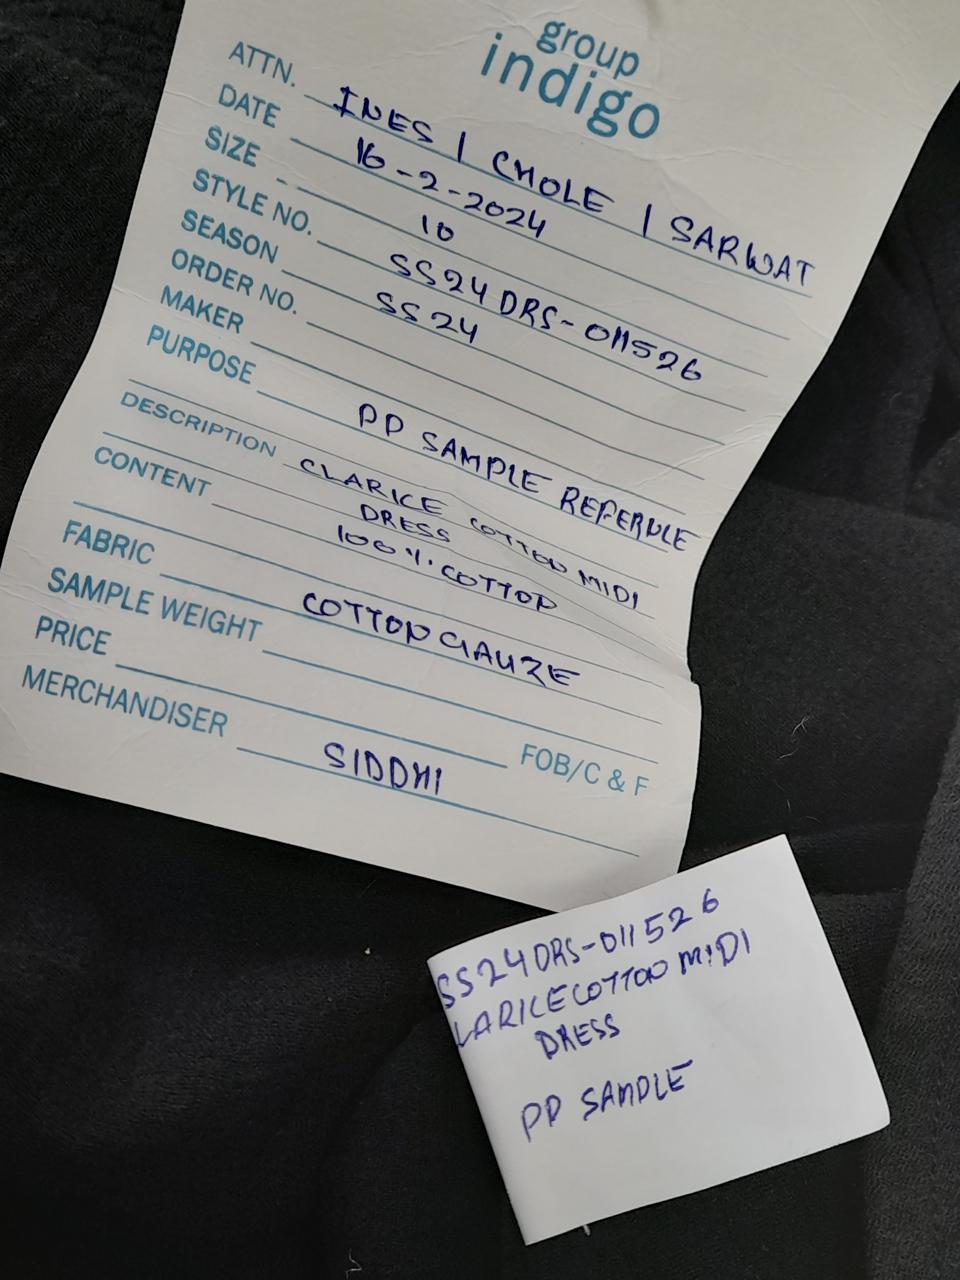 group
indigo
ATTN. INES | CHOLE | SARWAT
DATE 16-2-2024
SIZE 10
STYLE NO. SS24DRS-011526
SEASON SS24
ORDER NO.
MAKER
PURPOSE PP SAMPLE REFERNCE
DESCRIPTION CLARICE COTTON MIDI
DRESS
CONTENT 100%.COTTON
FABRIC COTTON GAUZE
SAMPLE WEIGHT
PRICE FOB/C & F
MERCHANDISER SIDDHI
SS24DRS-011526
LARICE COTTON MIDI
DRESS
PP SAMPLE